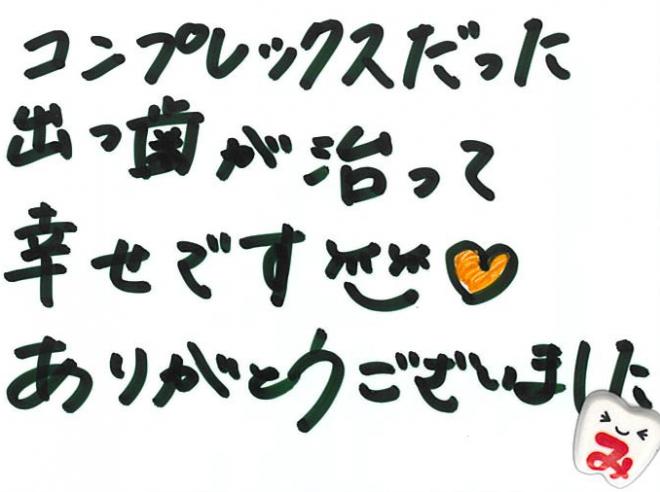 コンプレックスだった
出っ歯が治って
幸せです
ありがとうございました
み